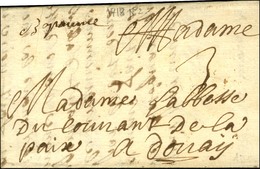 Bapaume
A Madame
Madame Labbesse
Du Couvant De la
paix
a douay